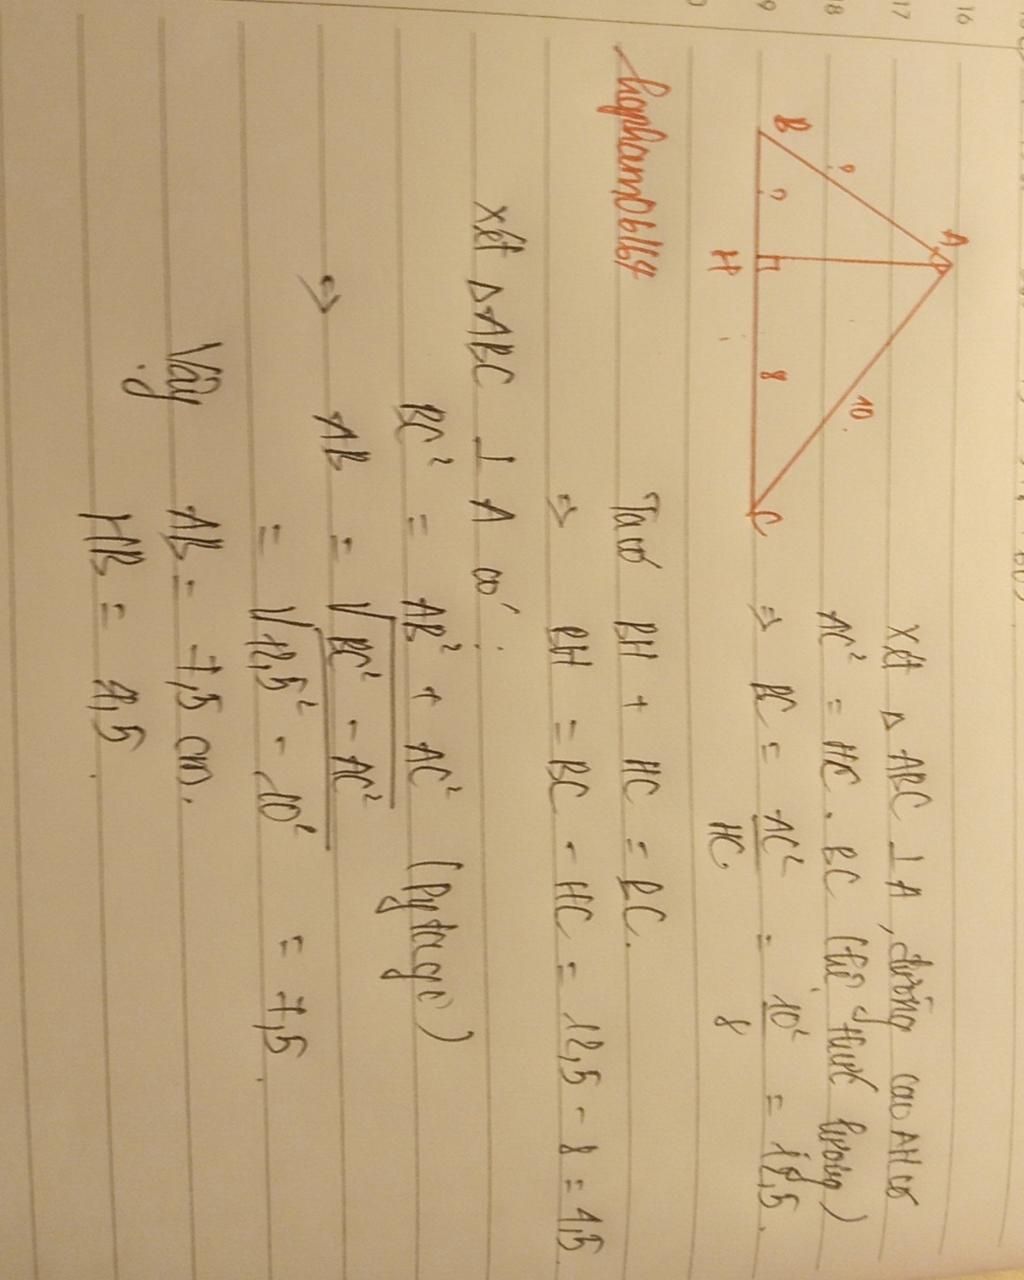 16
17
18
19
A
B
?
?
H
8
10.
C
hapham06164
Xét Δ ABC ⊥ A, đường cao AH có
AC² = HC . BC (hệ thức lượng)
⇒ BC = AC²/HC = 10²/8 = 12,5.
Ta có BH + HC = BC.
⇒ BH = BC - HC = 12,5 - 8 = 4,5.
Xét ΔABC ⊥ A có:
BC² = AB² + AC² (Pytago)
⇒ AB = √BC² - AC²
= √12,5² - 10² = 7,5.
Vậy AB = 7,5 cm.
HB = 4,5.